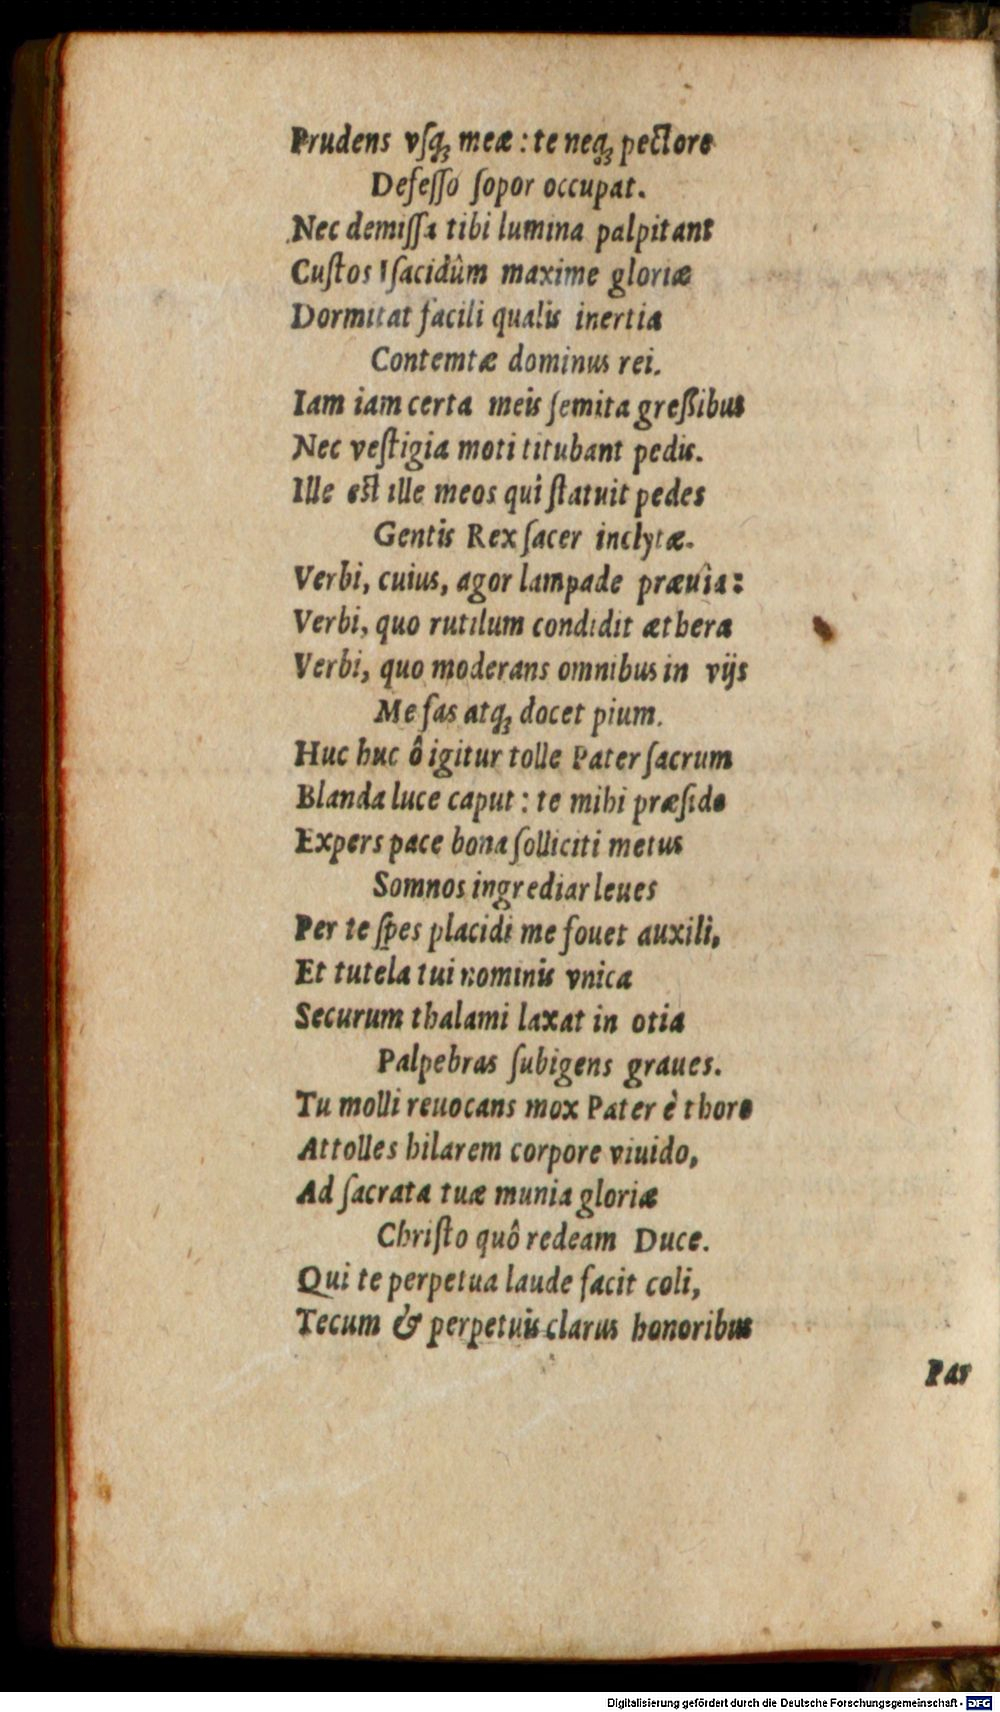 Prudens vſq́; meæ : te neq́; pectore
Defeſſo ſopor occupat.
Nec demiſſa tibi lumina palpitant
Cuſtos Iſacidûm maxime gloriæ
Dormitat facili qualis inertia
Contemtæ dominus rei.
Iam iam certa meis ſemita greßibus
Nec veſtigia moti titubant pedis.
Ille eſt ille meos qui ſtatuit pedes
Gentis Rex ſacer inclytæ.
Verbi, cuius, agor lampade præuia:
Verbi, quo rutilum condidit æthera
Verbi, quo moderans omnibus in vijs
Me fas atq́; docet pium.
Huc huc ô igitur tolle Pater ſacrum
Blanda luce caput : te mihi præſide
Expers pace bona ſolliciti metus
Somnos ingrediar leues
Per te ſpes placidi me fouet auxilî,
Et tutela tui nominis vnica
Securum thalami laxat in otia
Palpebras ſubigens graues.
Tu molli reuocans mox Pater è thoro
Attolles hilarem corpore viuido,
Ad ſacrata tuæ munia gloriæ
Chriſto quô redeam Duce.
Qui te perpetua laude facit coli,
Tecum & perpetuis clarus honoribus
Par
Digitalisierung gefördert durch die Deutsche Forschungsgemeinschaft - DFG